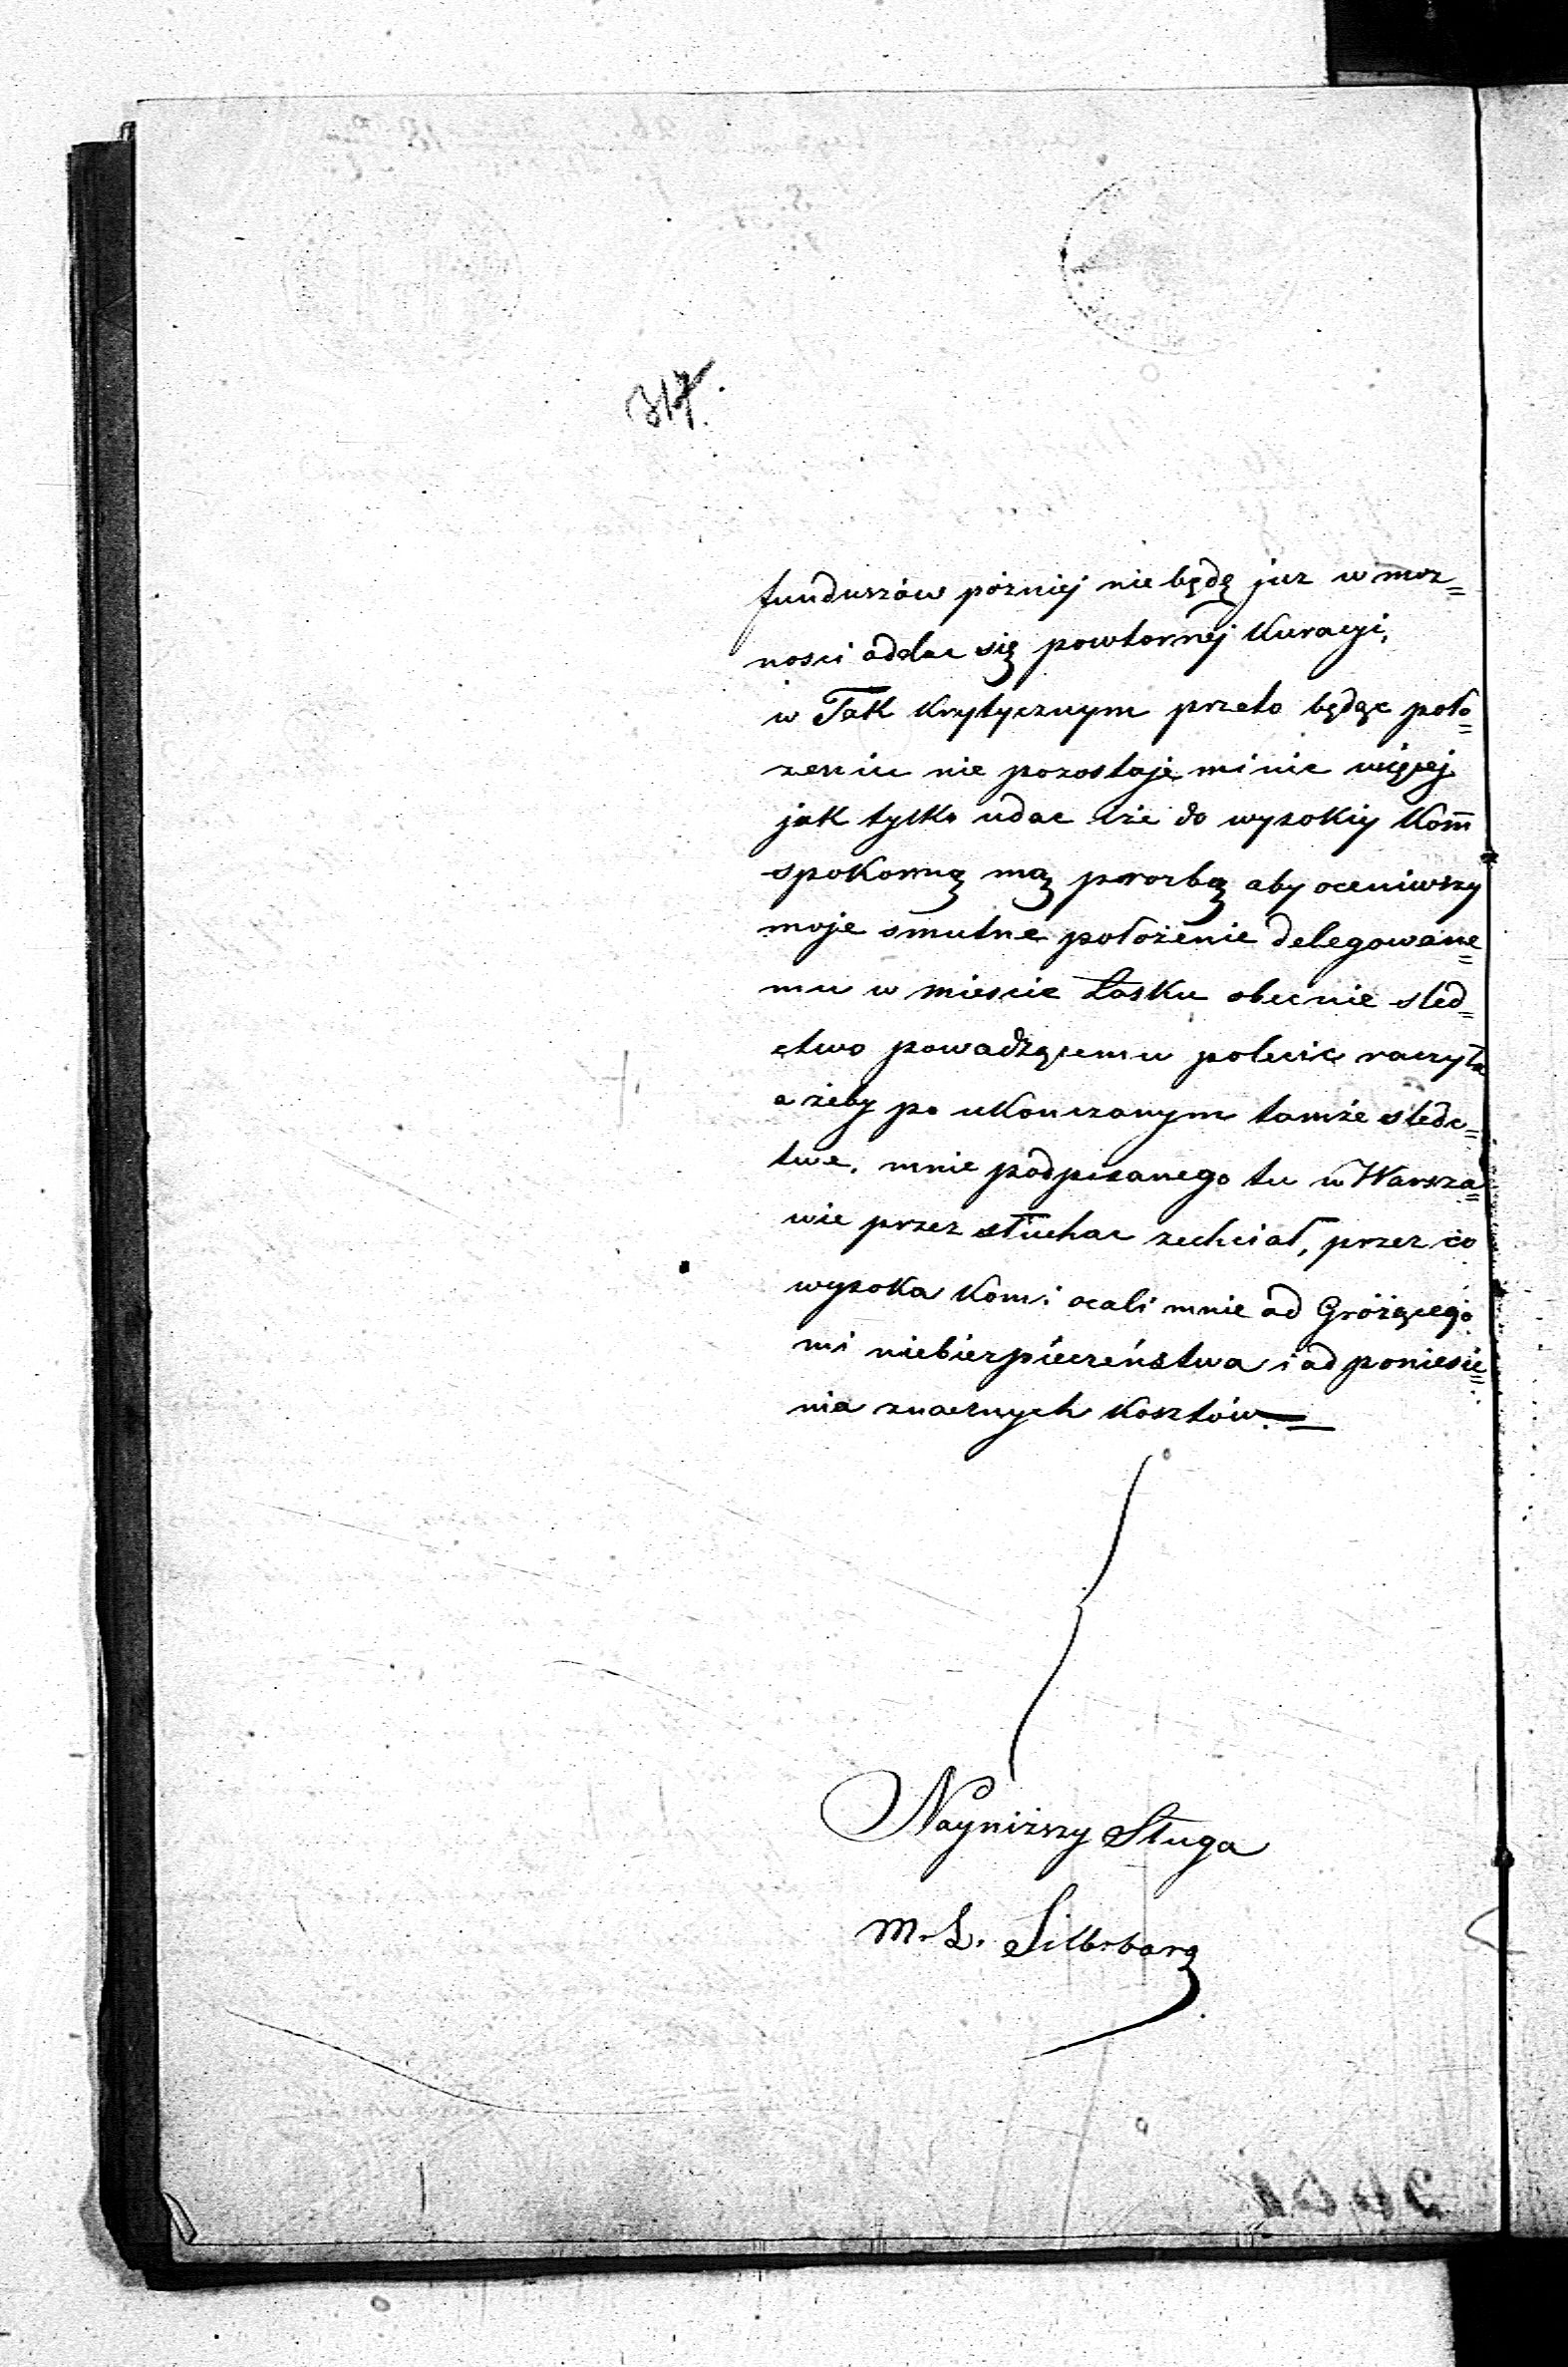 317.
funduszów pózniej nie będę juz w moz=
nosci oddac się powtornéj Kuracyi,
w Tak Krytycznym przeto będąc poło=
zeniu nie pozostaje mi nic więcej
jak tylko udac sie do wysokiy Kom̄
spokorną mą prozbą aby oceniwszy
moje smutne położenie delegowane=
mu w miescie Łasku obecnie sled=
ztwo powadzącemu polecic raczyła
a żeby po ukonczonym tamże sledc=
twe, mnie podpisanego tu w Warsza=
wie przez słuchac zechciał, przez co
wysoka Kom: ocali mnie od Gróżącego
mi niebiezpieczeństwa i od poniesie=
nia znacznych Kosztów
Nayniższy Sługa
M. L. Silberbarg